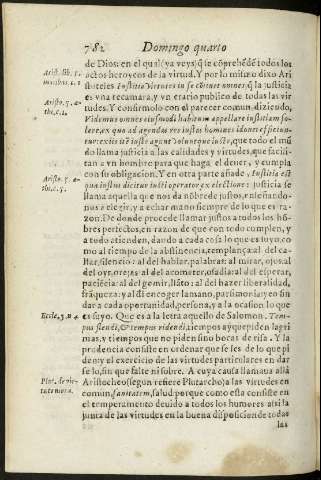 782 Domingo quarto
de Dios: en el qual (ya veys) q̃ se cõprehẽdẽ todos los
Arist. lib. 5. actos heroycos de la virtud. Y por lo mismo dixo Ari
stoteles Iustitia virtutes in se cõtinet omnes: q̃ la justicia
es vna recamara, y vn erario publico de todas las vir
Aristo. 5. e- tudes. Y confirmolo con el parecer comun, diziendo,
thc. c. 1. Videmus omnes eiusmodi habitum appellare iustitiam so-
lere, ex quo ad agendas res iustas homines idonei efficiun-
tur: ex iustè agunt voluntque iusta, que todo el mũ
do llama justicia a las calidades y virtudes, que facili-
tan a vn hombre para que haga el deuer, y cumpla
con su obligacion. Y en otra parte añade, Iustitia est
Aristo. 5. e- qua iustus dicitur iusti operator ex electione: justicia se
thc. c. 5. llama aquella que nos da nõbre de justos, enseñando-
nos a elegir, y a echar mano siempre de lo que es ra-
zon. De donde procede llamar justos a todos los hõ-
bres perfectos, en razon de que con todo cumplen, y
a todo atienden, dando a cada cosa lo que es suyo: co
mo al tiempo de la abstinencia, templança: al del ca-
llar, silencio: al del hablar, palabras: al mirar, ojos: al
del oyr, orejas: al del acometer, osadia: al del esperar,
paciẽcia: al del gemir, llãto: al del hazer liberalidad,
frãqueza: y al dl encoger la mano, parsimonia: y en fin
dar a cada oportunidad, persona, y a la ocasion lo que
Eccle. 3. n. 4. es suyo. Que es a la letra aquello de Salomon. Tem-
pus flendi, & tempus ridendi, tiempos ay que piden lagri
mas, y tiempos que no piden sino bocas de risa. Y la
prudencia consiste en ordenar que se les dè lo que pi
den y el exercicio de las virtudes particulares en dar
se lo, sin que falte ni sobre. A cuya causa llamaua alla
Plut. de vir- Aristocheo (segun refiere Plutarcho) a las virtudes en
tute mora. comun, sanitatem, salud: porque como esta consiste en
el temperamento deuido a todos los humores assi la
junta de las virtudes en la buena disposicion de todas
las